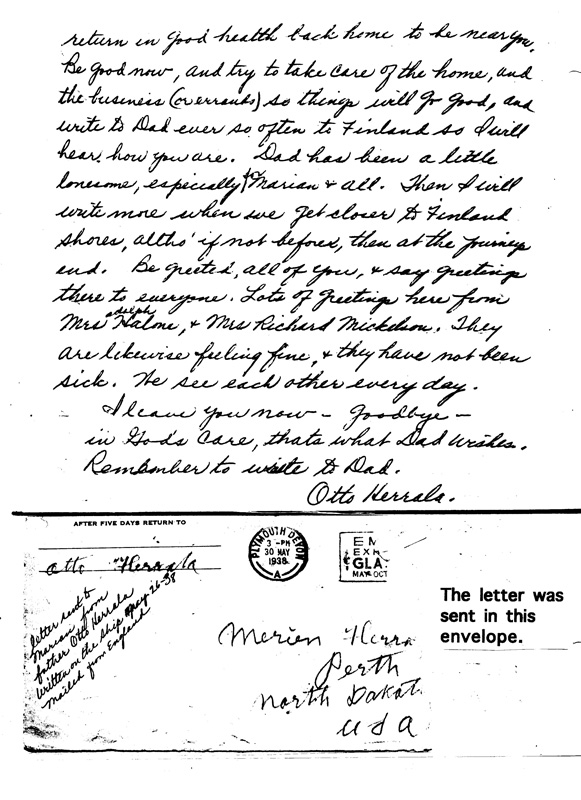 return in good health back home to be near you.
Be good now, and try to take care of the home, and
the business (overrands) so things will go good, and
write to Dad ever so often to Finland so I will
hear how you are. Dad has been a little
lonesome, especially for Marian & all. Then I will
write more when we get closer to Finland
shores, altho' if not before, then at the journeys
end. Be greeted, all of you, & say greetings
there to everyone. Lots of greetings here from
Mrs Adolph Halone, & Mrs Richard Mickelson. They
are likewise feeling fine, & they have not been
sick. We see each other every day.
I leave you now - Goodbye -
in God's care, thats what Dad wishes.
Remember to write to Dad.
Otto Herrala.
AFTER FIVE DAYS RETURN TO
Otto Herrala
letter sent to
Marian from
father Otto Herrala
written on the ship May 26-38
mailed from England
PLYMOUTH DEVON
3 - PM
30 MAY
1938
A
EM
EXH
GLA
MAY-OCT
Merien Herra
Perth
North Dakot
USA
The letter was
sent in this
envelope.